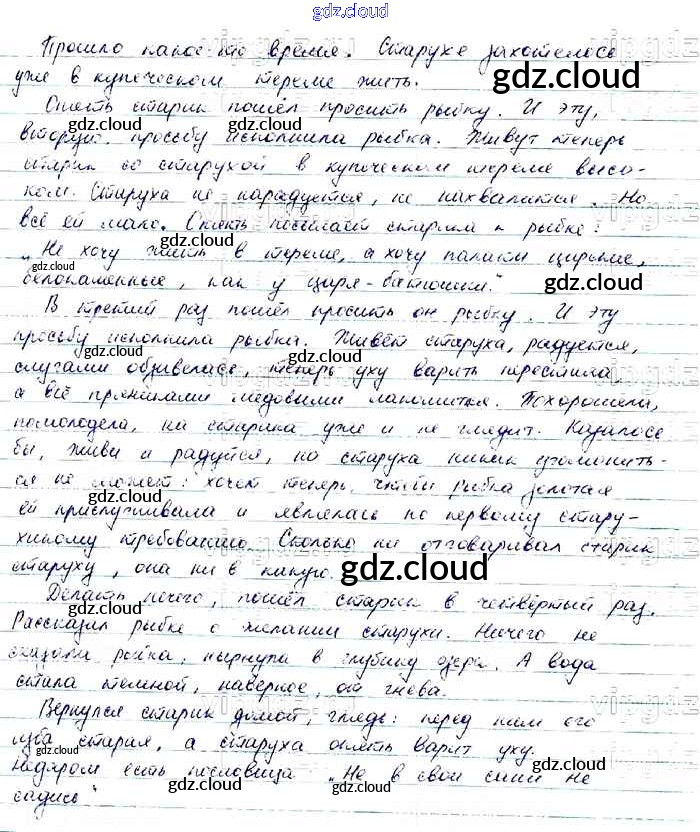 gdz.cloud
Прошло какое-то время. Старухе захотелось
уже в купеческом тереме жить.
gdz.cloud
Опять старик пошёл просить рыбку. И эту,
gdz.cloud gdz.cloud
вторую, просьбу исполнила рыбка. Живут теперь
старик со старухой в купеческом тереме высо-
ком. Старуха не нарадуется, не нахвалится. Но
gdz.cloud
всё ей мало. Опять посылает старика к рыбке:
gdz.cloud
„Не хочу жить в тереме, а хочу палаты царские,
gdz.cloud gdz.cloud
белокаменные, как у царя-батюшки."
В третий раз пошёл просить он рыбку. И эту
просьбу исполнила рыбка. Живёт старуха, радуется,
gdz.cloud gdz.cloud
слугами обзавелась, теперь уху варить перестала,
а всё пряниками медовыми лакомится. Похорошела,
помолодела, на старика уже и не глядит. Казалось
бы, живи и радуйся, но старуха никак угомонить-
ся не может: хочет теперь, чтобы рыбка золотая
gdz.cloud
ей прислуживала и являлась по первому стару-
хиному требованию. Сколько ни отговаривал старик
gdz.cloud
старуху, она ни в какую.
gdz.cloud
Делать нечего, пошёл старик в четвёртый раз.
gdz.cloud gdz.cloud
Рассказал рыбке о желании старухи. Ничего не
сказала рыбка, нырнула в глубину озера. А вода
gdz.cloud gdz.cloud
стала темной, наверное, от гнева.
Вернулся старик домой, глядь: перед ним его
изба старая, а старуха опять варит уху.
gdz.cloud gdz.cloud
Недаром есть пословица „Не в свои сани не
gdz.cloud gdz.cloud
садись"